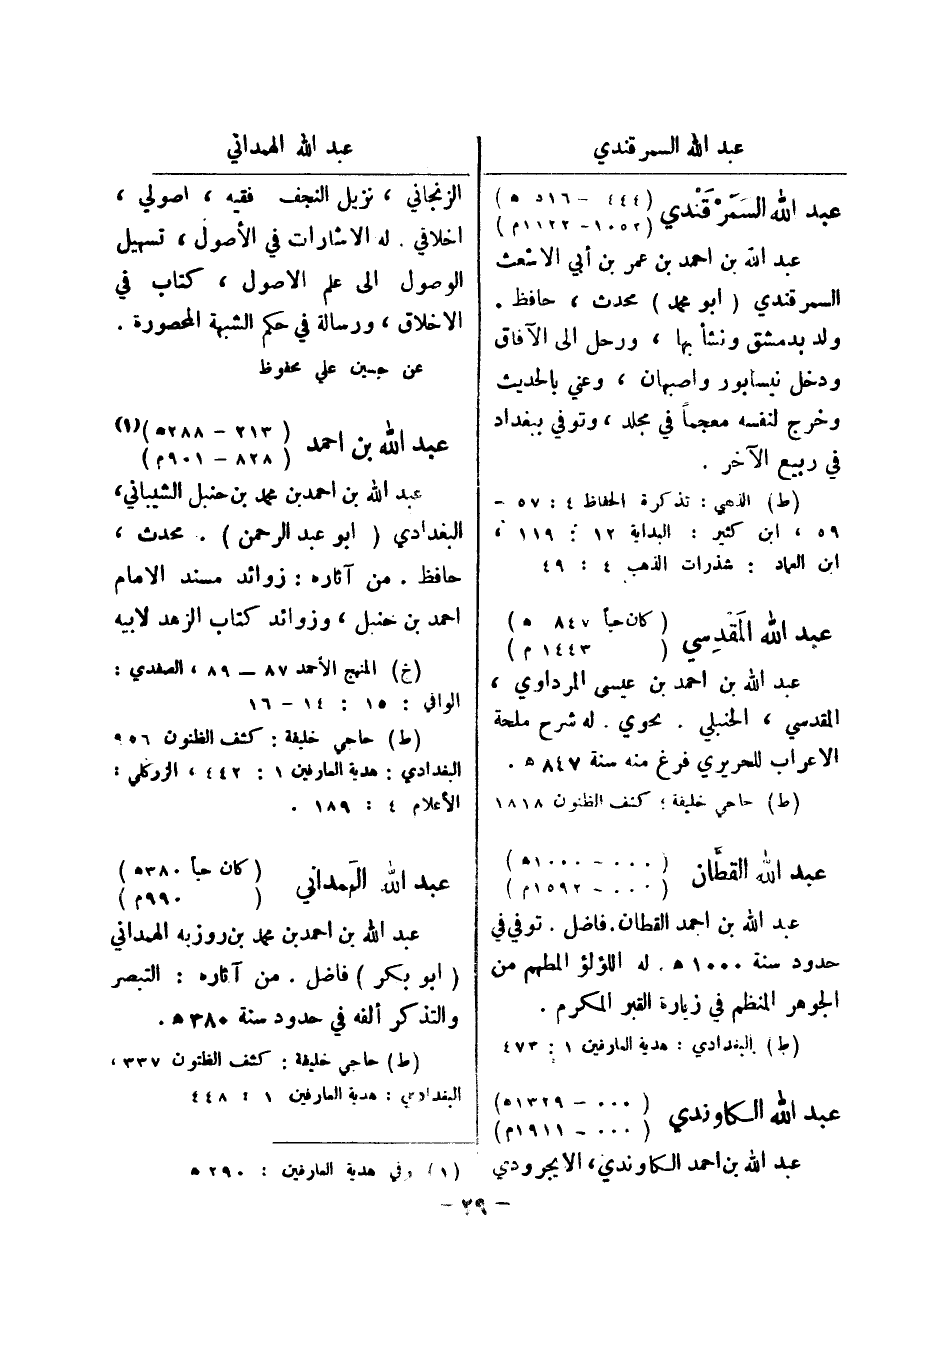 عبد الله السمرقندي
عبد الله السَمَرْقَندي
(٤٤٤ - ٥١٦ ه)
(١٠٥٢ - ١١٢٢م)
عبد الله بن احمد بن عمر بن أبي الاشعث
السمرقندي ( ابو محمد ) محدث ، حافظ .
ولد بدمشق ونشأ بها ، ورحل الى الآفاق
ودخل نيسابور واصبهان ، وعني بالحديث
وخرج لنفسه معجماً في مجلد ، وتوفي ببغداد
في ربيع الآخر .
(ط) الذهبي : تذكرة الحفاظ ٤ : ٥٧ -
٥٩ ، ابن كثير : البداية ١٢ : ١١٩ ،
ابن العماد : شذرات الذهب ٤ : ٤٩
عبد الله المَقْدِسي
( كان حياً ٨٤٧ ه )
( ١٤٤٣ م )
عبد الله بن احمد بن عيسى المرداوي ،
المقدسي ، الحنبلي . نحوي . له شرح ملحة
الاعراب للحريري فرغ منه سنة ٨٤٧ ه .
(ط) حاجي خليفة : كشف الظنون ١٨١٨
عبد الله القطَّان
( ٠٠٠ - ١٠٠٠ه )
( ٠٠٠ - ١٥٩٢م )
عبد الله بن احمد القطان . فاضل . توفي في
حدود سنة ١٠٠٠ ه . له اللؤلؤ المطهم من
الجوهر المنظم في زيارة القبر المكرم .
(ط) البغدادي : هدية العارفين ١ : ٤٧٣
عبد الله الكاوندي
( ٠٠٠ - ١٣٢٩ه )
( ٠٠٠ - ١٩١١م )
عبد الله بن احمد الكاوندي ، الايجرودي
عبد الله الهمداني
الزنجاني ، نزيل النجف فقيه ، اصولي ،
اخلاقي . له الاشارات في الأصول ، تسهيل
الوصول الى علم الاصول ، كتاب في
الاخلاق ، ورسالة في حكم الشبهة المحصورة .
عن حسين علي محفوظ
عبد الله بن احمد
( ٢١٣ - ٢٨٨ه ) (١)
( ٨٢٨ - ٩٠١م )
عبد الله بن احمد بن محمد بن حنبل الشيباني ،
البغدادي ( ابو عبد الرحمن ) . محدث ،
حافظ . من آثاره : زوائد مسند الامام
احمد بن حنبل ، وزوائد كتاب الزهد لابيه
(خ) المنهج الأحمد ٨٧ - ٨٩ ، الصفدي :
الوافي : ١٥ : ١٤ - ١٦
(ط) حاجي خليفة : كشف الظنون ٩٥٦
البغدادي : هدية العارفين ١ : ٤٤٢ ، الزركلي :
الأعلام ٤ : ١٨٩ .
عبد الله الهمداني
( كان حياً ٣٨٠ه )
( ٩٩٠م )
عبد الله بن احمد بن محمد بن روزبه الهمداني
( ابو بكر ) فاضل . من آثاره : التبصر
والتذكر ألفه في حدود سنة ٣٨٠ ه .
(ط) حاجي خليفة : كشف الظنون ٣٣٧ ،
البغدادي : هدية العارفين ١ : ٤٤٨
(١) وفي هدية العارفين : ٢٩٠ ه
- ٢٩ -